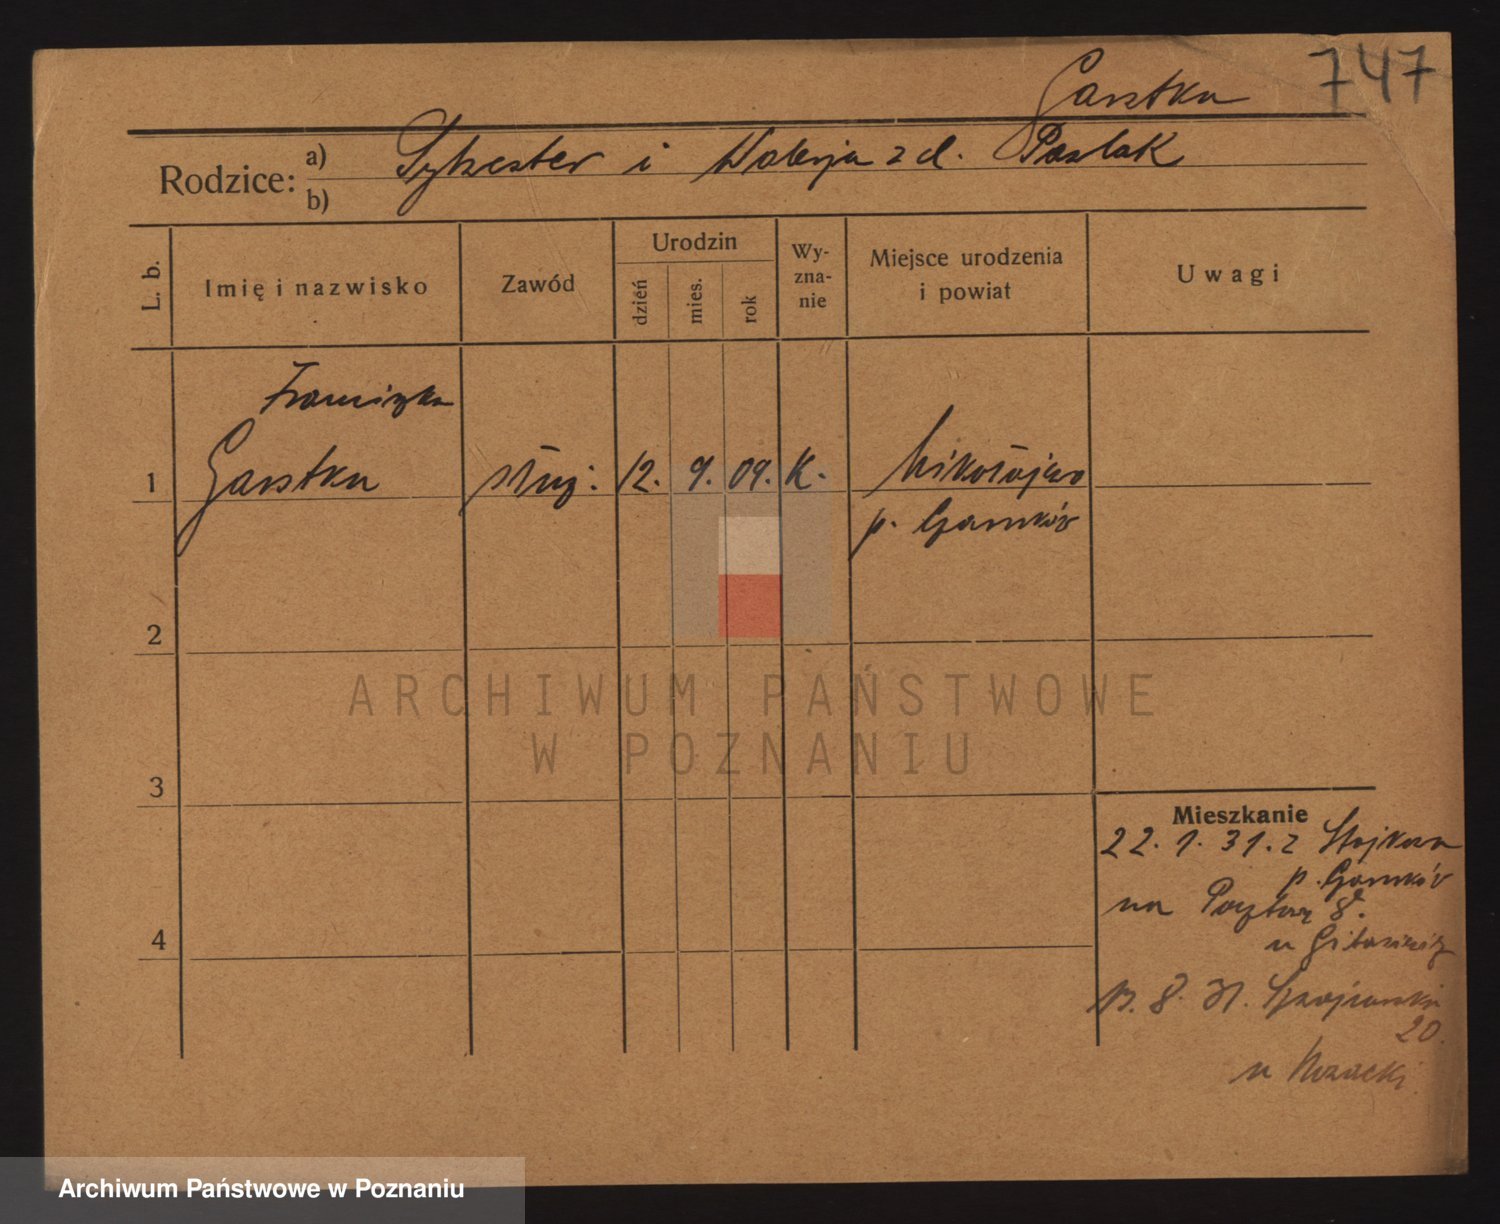 Garstka 747
Rodzice: a) Sylwester i Walerja z d. Paszlak
b)
L. b. Imię i nazwisko Zawód Urodzin dzień mies. rok Wy-zna-nie Miejsce urodzenia i powiat Uwagi
Franciszka
1 Garstka służ: 12. 9. 09. K. Mikołajewo
p. Czarnków
2
3
4
Mieszkanie
22. 1. 31. z
p. Czarnków
na Pocztową 8.
u
13. 8. 31.
20.
u
ARCHIWUM PAŃSTWOWE
W POZNANIU
Archiwum Państwowe w Poznaniu